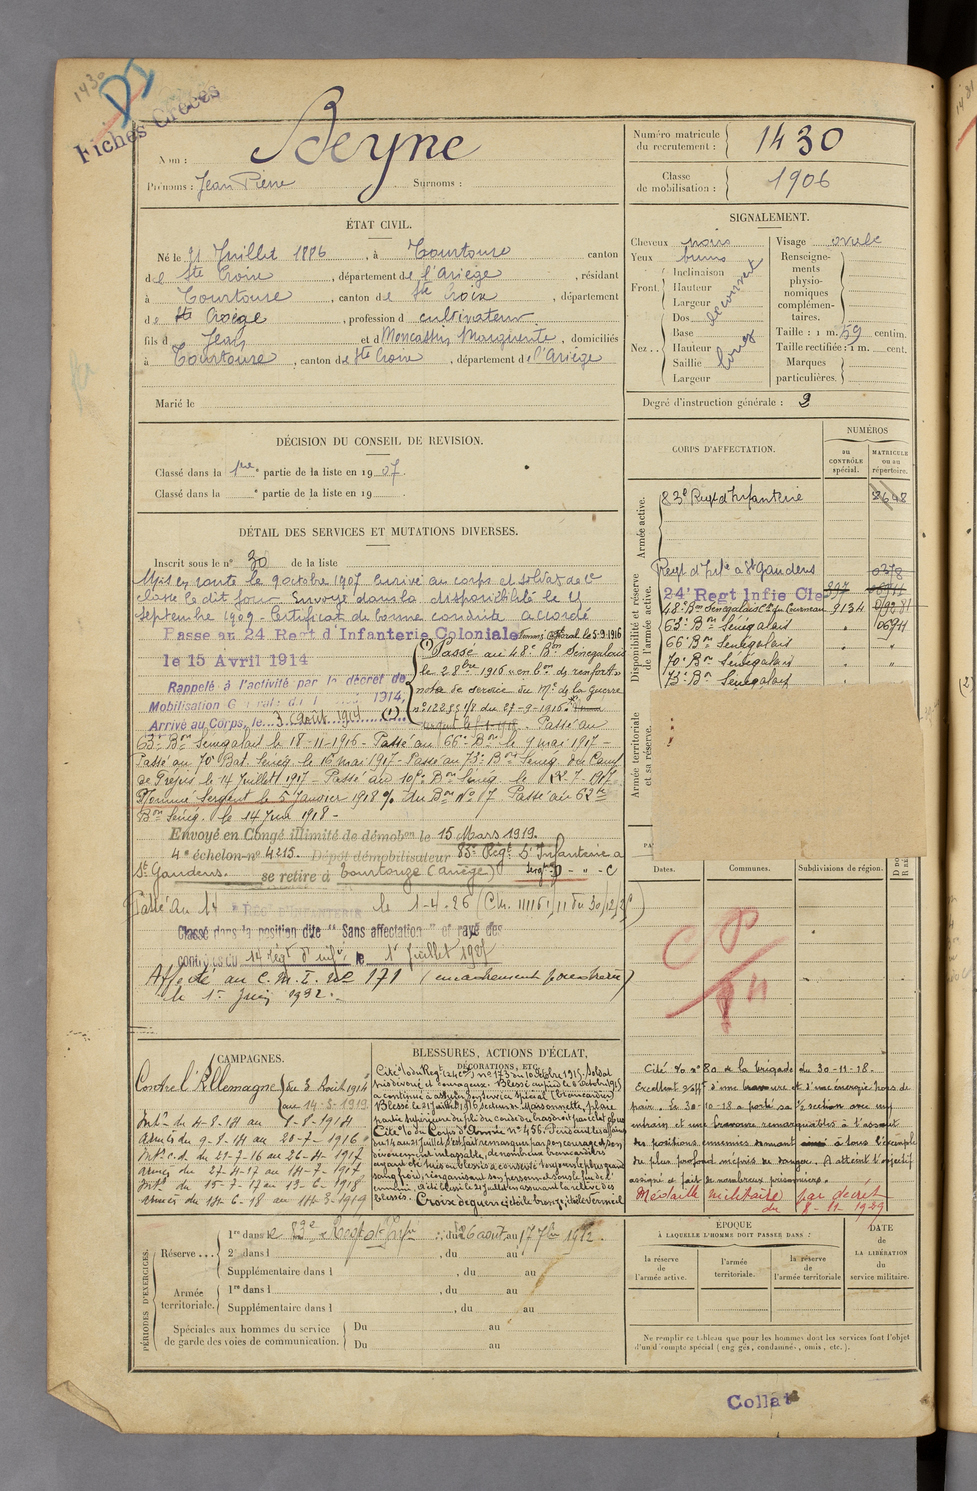 1430
D1
Fiches Créées
Nom : Beyne
Prénoms : Jean Pierre Surnoms :
Numéro matricule du recrutement : 1430
Classe de mobilisation : 1906
ÉTAT CIVIL.
Né le 21 Juillet 1886, à Tourtouse canton
de Ste Croix, département de l'Ariège, résidant
à Tourtouse, canton de Ste Croix, département
de Ariège, profession de cultivateur
fils de Jean et de Moncassin Marguerite, domiciliés
à Tourtouse, canton de Ste Croix, département de l'Ariège
Marié le
SIGNALEMENT.
Cheveux noirs
Yeux bruns
Front. Inclinaison
Hauteur
Largeur
découvert
Nez.. Dos
Base
Hauteur
Saillie
Largeur
Visage ovale
Renseignements physionomiques complémentaires.
Taille : 1 m. 59 centim.
Taille rectifiée : 1 m. cent.
Marques particulières.
Degré d'instruction générale : 3
DÉCISION DU CONSEIL DE REVISION.
Classé dans la 1ère partie de la liste en 1907.
Classé dans la e partie de la liste en 19
DÉTAIL DES SERVICES ET MUTATIONS DIVERSES.
Inscrit sous le n° 30 de la liste
Mis en route le 9 octobre 1907 arrivé au corps et soldat de 2e
classe le dit jour Envoyé dans la disponibilité le
septembre 1909 - Certificat de bonne conduite accordé
Passé au 24 Regt d'Infanterie Coloniale Nommé Caporal le 5-9-1916
le 15 Avril 1914
Rappelé à l'activité par le décret de
Mobilisation Générale du 1 1914,
Arrivé au Corps, le 3 août 1914 (1)
(1) Passé au 48e Bon Sénégalais
le 28bre 1916 "en bon de renfort"
note de service du Mre de la Guerre
n° 12255 1/8 du 27-9-1916.
Passé au
63e Bon Sénégalais le 18-11-1916 - Passé au 66e Bon le 9 mai 1917 -
Passé au 70e Bat. Sénég. le 16 mai 1917 - Passé au 73e Bon Sénég. du Camp
de Fréjus le 14 Juillet 1917 - Passé au 106e Bon Sénég. le
Nommé Sergent le 5 Janvier 1918 % du Bon N° 17 Passé au 62e
Bon Sénég. le 14 Juin 1918 -
Envoyé en Congé illimité de démobon le 15 Mars 1919.
4e échelon n° 4215. Dépôt démobilisateur 83e Régt d'Infanterie à
St Gaudens. se retire à Tourtouze (Ariège)
Passé au 14 Rég. d'Infanterie le 1-4-26
Classé dans la position dite "Sans affectation" et rayé des
contrôles du 14 régt d'infie le 1er Juillet 1927
Affecté au C.M.I. No 171
le 1er Juin 1932.
CORPS D'AFFECTATION.
NUMÉROS
au CONTRÔLE spécial.
MATRICULE ou au répertoire.
Armée active.
83e Regt d'Infanterie 8648
Disponibilité et réserve de l'armée active.
Regt d'Infie à St Gaudens 0378
24e Regt Infie Cle 397
48e Bon Senegalais Cie du Courneau 9134
63e Bon Sénégalais
66e Bon Sénégalais
70e Bon Sénégalais
73e Bon Senegalais
Armée territoriale et sa réserve.
Dates. Communes. Subdivisions de région.
CAMPAGNES.
Contre l'Allemagne du 3 Août 1914
au 14-3-1919
Intr du 4-8-14 au 8-8-1914
Armées du 9-8-14 au 20-7-1916
Intr c.d. du 21-7-16 au 26-4-1917
Armées du 27-4-17 au 14-7-1917
Intr du 15-7-17 au 13-6-1918
Armées du 14-6-18 au 14-3-1919
BLESSURES, ACTIONS D'ÉCLAT,
DÉCORATIONS, ETC.
Cité à l'o du Régt (24 Col) n° 173 du 10 octobre 1915. Soldat
très dévoué et courageux. Blessé
a continué à assurer son service spécial (brancardier)
Blessé le 21 juillet 1916
Cité à l'o du Corps d'Armée n° 456.
du 14 au 21 juillet s'est fait remarquer par son courage et son
dévouement inlassable, de nombreux brancardiers
ayant été tués ou blessés a conservé toujours le plus grand
sang froid
blessés. Croix de guerre étoile bronze, étoile vermeil
Cité %o n° 80 de la brigade du 30-11-18.
Excellent s/off d'une bravoure et d'une énergie hors de
pair. Le 30-10-18 a porté sa 1/2 section avec un
entrain et une bravoure remarquables à l'assaut
des positions ennemies donnant à tous l'exemple
du plus profond mépris du danger. A atteint l'objectif
assigné et fait de nombreux prisonniers.
Médaille militaire par décret
du 8-11-1929
PÉRIODES D'EXERCICES.
Réserve... 1re dans le 83e Regt d'Infie, du 26 août au 17 7bre 1912.
2e dans l , du au
Supplémentaire dans l , du au
Armée territoriale. 1re dans l , du au
Supplémentaire dans l , du au
Spéciales aux hommes du service de garde des voies de communication. Du au
Du au
ÉPOQUE
À LAQUELLE L'HOMME DOIT PASSER DANS :
la réserve de l'armée active.
l'armée territoriale.
la réserve de l'armée territoriale
DATE DE LA LIBÉRATION du service militaire.
Ne remplir ce tableau que pour les hommes dont les services font l'objet
d'un décompte spécial (engagés, condamnés, omis, etc.).
Collat